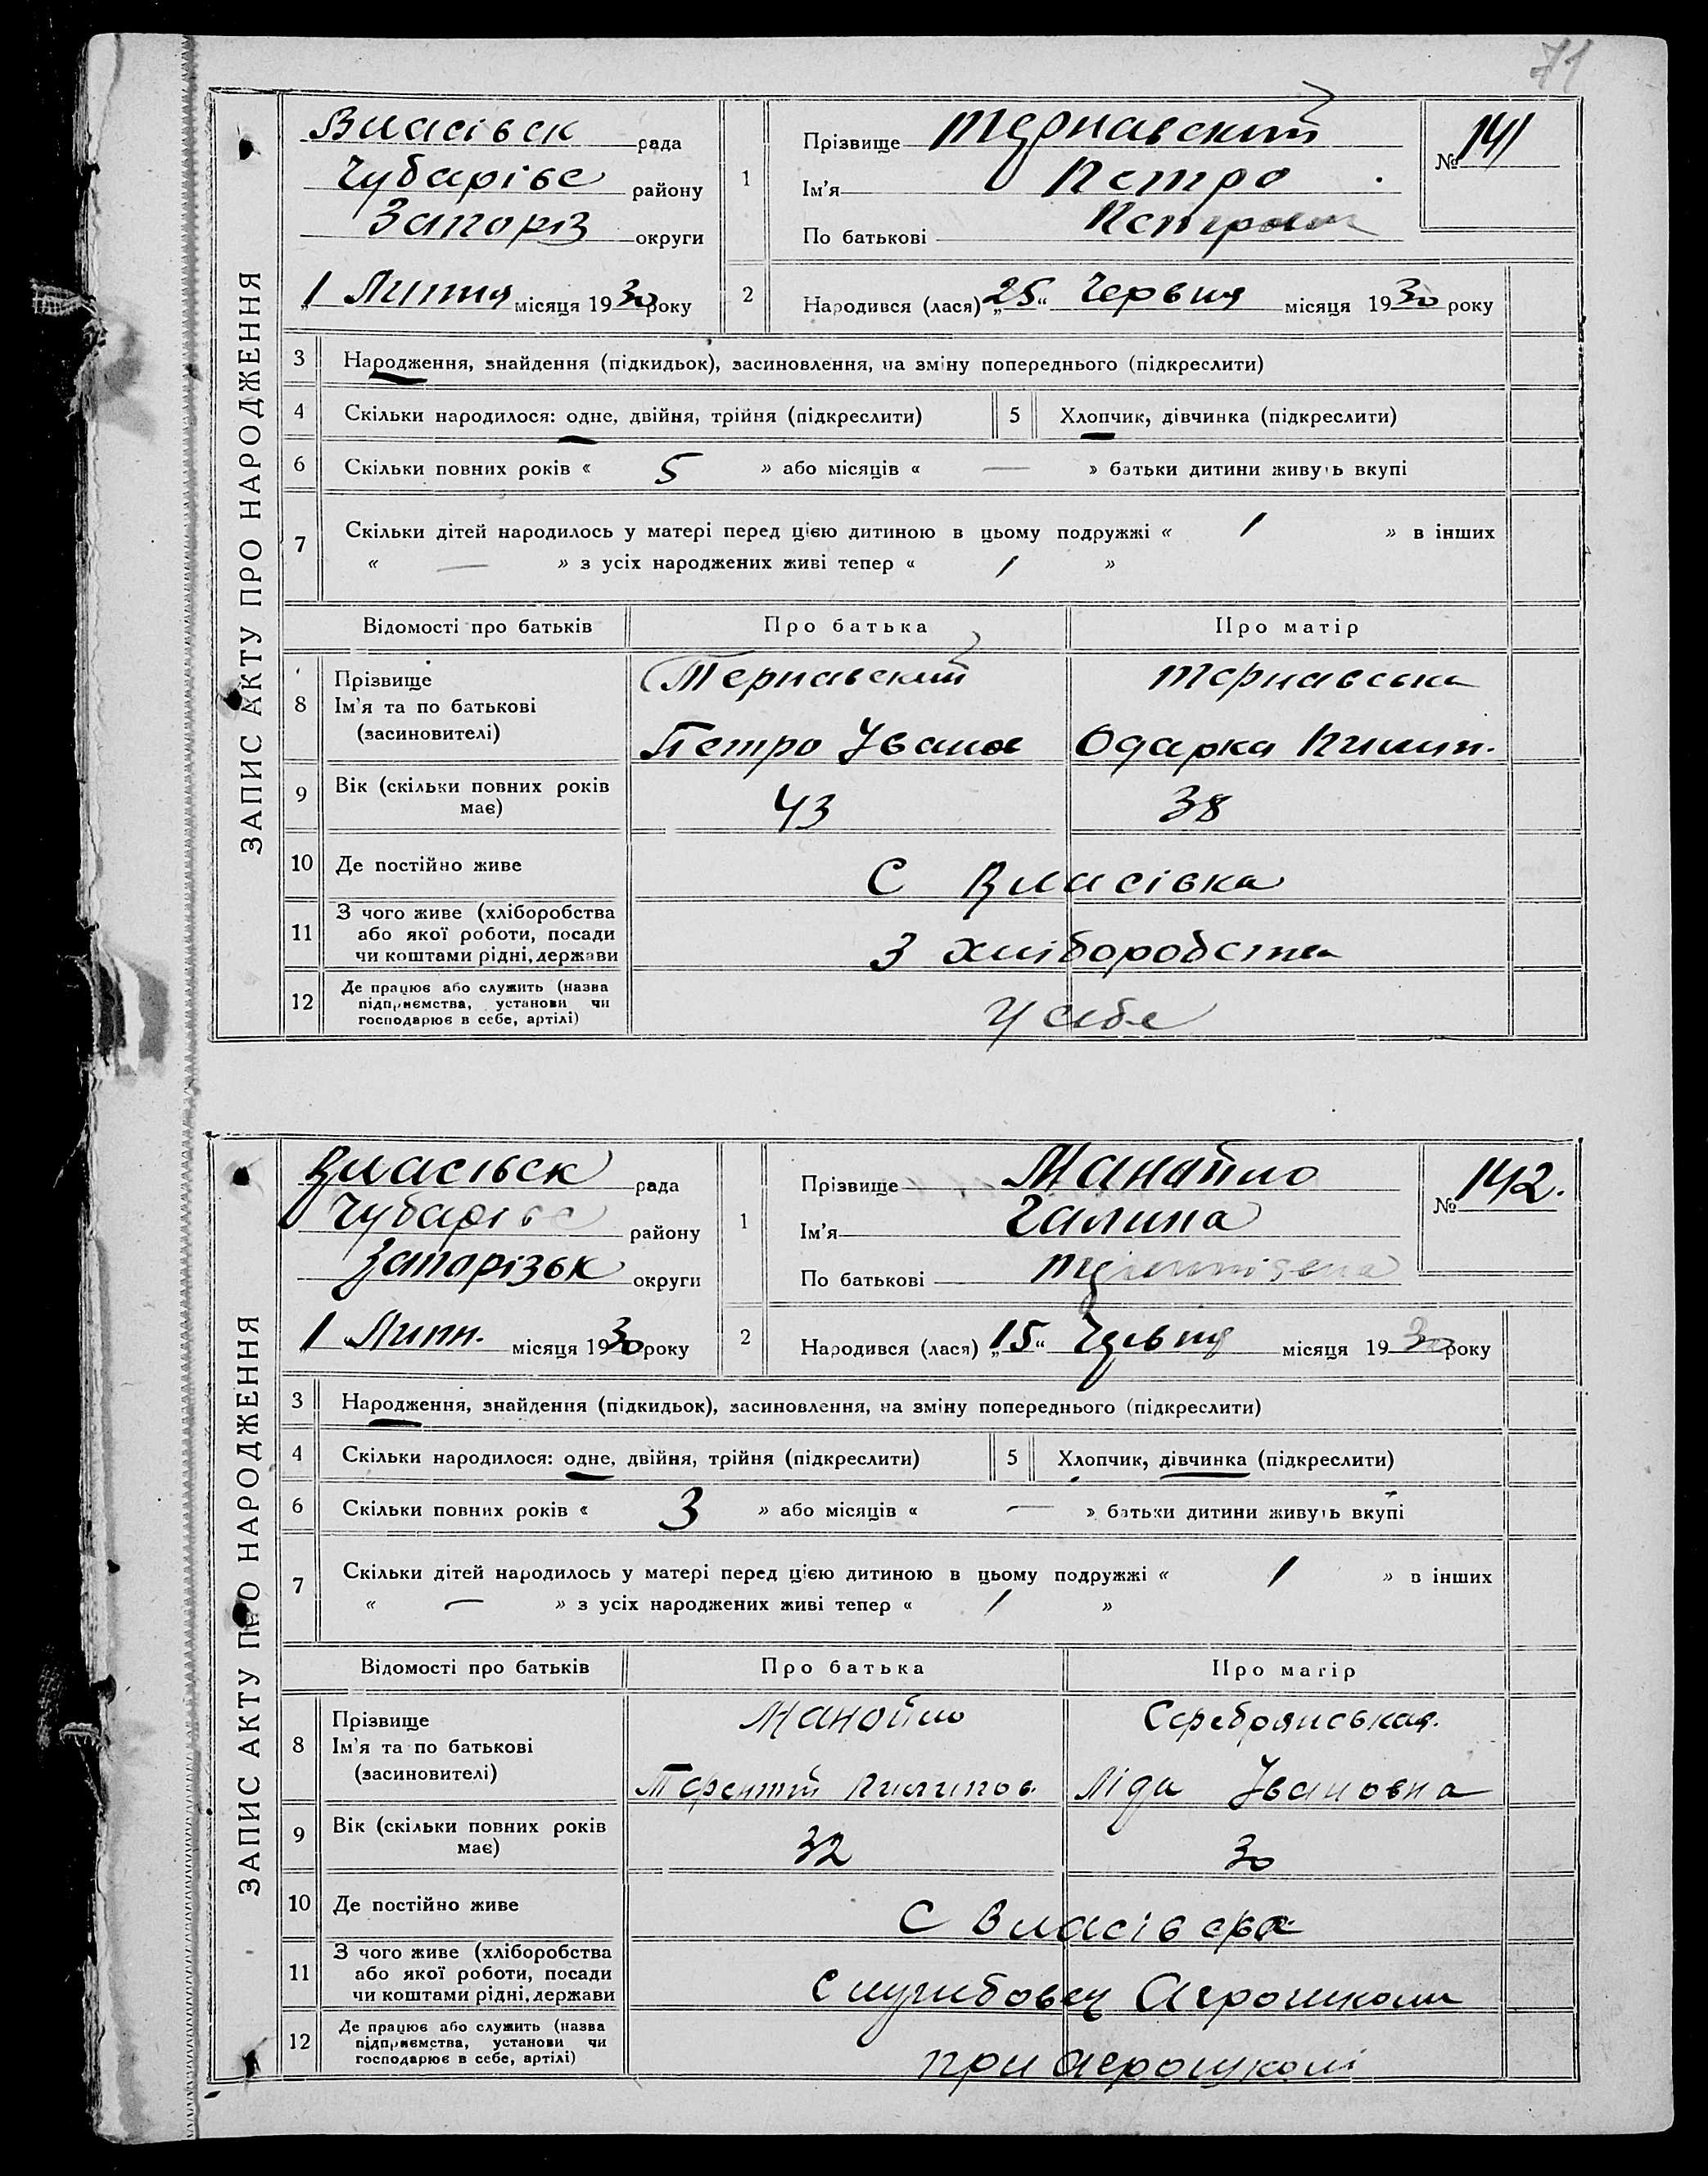 71
ЗАПИС АКТУ ПРО НАРОДЖЕННЯ
Власівск рада
Чубарівс району
Запоріз округи
„1 Липня місяця 1930 року
1 Прізвище Тернавский
Ім'я Петро
По батькові
№ 141
2 Народився (лася) „25“ Червня місяця 1930 року
3 Народження, знайдення (підкидьок), засиновлення, на зміну попереднього (підкреслити)
4 Скільки народилося: одне, двійня, трійня (підкреслити) 5 Хлопчик, дівчинка (підкреслити)
6 Скільки повних років « 5 » або місяців « — » батьки дитини живуть вкупі
7 Скільки дітей народилось у матері перед цією дитиною в цьому подружжі « 1 » в інших
« — » з усіх народжених живі тепер « 1 »
Відомості про батьків Про батька Про матір
8 Прізвище Тернавский Тернавська
Ім'я та по батькові
(засиновителі) Петро Іванов Одарка Пилип.
9 Вік (скільки повних років має) 43 38
10 Де постійно живе С Власівка
11 З чого живе (хліборобства
або якої роботи, посади
чи коштами рідні, держави З хліборобства
12 Де працює або служить (назва
підприємства, установи чи
господарює в себе, артілі) У себе
ЗАПИС АКТУ ПРО НАРОДЖЕННЯ
Власівск рада
Чубарівс району
Запорізьк округи
„1 Липн. місяця 1930 року
1 Прізвище Манойло
Ім'я Галина
По батькові
№ 142.
2 Народився (лася) „15“ Червня місяця 1930 року
3 Народження, знайдення (підкидьок), засиновлення, на зміну попереднього (підкреслити)
4 Скільки народилося: одне, двійня, трійня (підкреслити) 5 Хлопчик, дівчинка (підкреслити)
6 Скільки повних років « 3 » або місяців « — » батьки дитини живуть вкупі
7 Скільки дітей народилось у матері перед цією дитиною в цьому подружжі « 1 » в інших
« — » з усіх народжених живі тепер « 1 »
Відомості про батьків Про батька Про матір
8 Прізвище Манойло Серебрянськая.
Ім'я та по батькові
(засиновителі) Терентій Пилипов. Ліда Івановна
9 Вік (скільки повних років має) 32 30
10 Де постійно живе С
11 З чого живе (хліборобства
або якої роботи, посади
чи коштами рідні, держави Службовец Агрошколи
12 Де працює або служить (назва
підприємства, установи чи
господарює в себе, артілі) при агрошколі